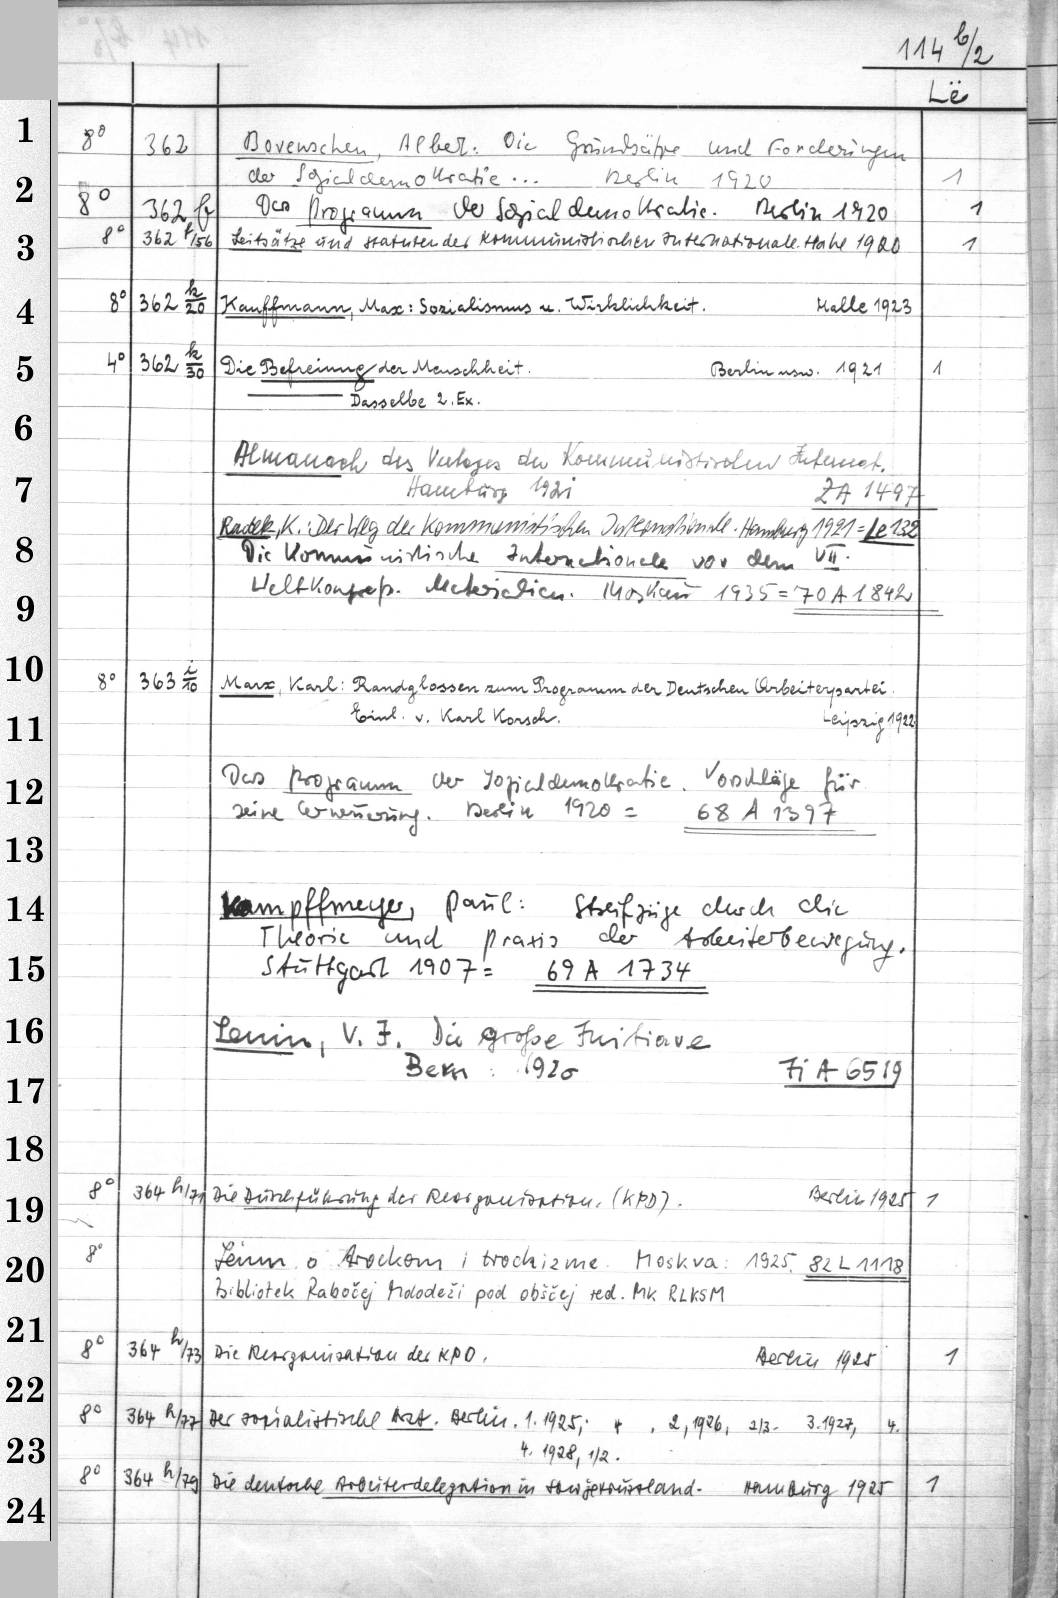 114 b/2
Lë
1 8° 362 Bovenschen, Albert: Die Grundsätze und Forderungen
2 der Sozialdemokratie... Berlin 1920 1
8° 362 Das Programm der Sozialdemokratie. Berlin 1920 1
3 8° 362 k/56 Leitsätze und Statuten der Kommunistischen Internationale. Halle 1920 1
4 8° 362 k/20 Kauffmann, Max: Sozialismus u. Wirklichkeit. Halle 1923
5 4° 362 k/30 Die Befreiung der Menschheit. Berlin usw. 1921 1
Dasselbe 2. Ex.
6
Almanach des Verlages der Kommunistischen Internat.
7 Hamburg 1921 ZA 1497
Radek, K.: Der Weg der Kommunistischen Internationale. Hamburg 1921 = Le 132
8 Die Kommunistische Internationale vor dem VII.
9 Weltkongreß. Materialien. Moskau 1935 = 70 A 1842
10 8° 363 i/10 Marx, Karl: Randglossen zum Programm der Deutschen Arbeiterpartei.
11 Einl. v. Karl Korsch. Leipzig 1922
12 Das Programm der Sozialdemokratie. Vorschläge für
seine Erneuerung. Berlin 1920 = 68 A 1397
13
14 Kampffmeyer, Paul: Streifzüge durch die
Theorie und Praxis der Arbeiterbewegung.
15 Stuttgart 1907 = 69 A 1734
16 Lenin, V. I. Die große Initiave
17 Bern: 1920 Zi A 6519
18
19 8° 364 h/71 Die Durchführung der Reorganisation. (KPD). Berlin 1925 1
20 8° Lenin o Trockom i trockizme. Moskva: 1925. 82 L 1118
Bibliotek Rabočej Mdodeži pod obščej red. MK RLKSM
21 8° 364 h/73 Die Reorganisation der KPD. Berlin 1925 1
22
8° 364 h/77 Der sozialistische Arzt. Berlin. 1. 1925, 4. 2, 1926, 2/3. 3. 1927, 4.
23 4. 1928, 1/2.
8° 364 h/79 Die deutsche Arbeiterdelegation in Sowjetrussland. Hamburg 1925 1
24